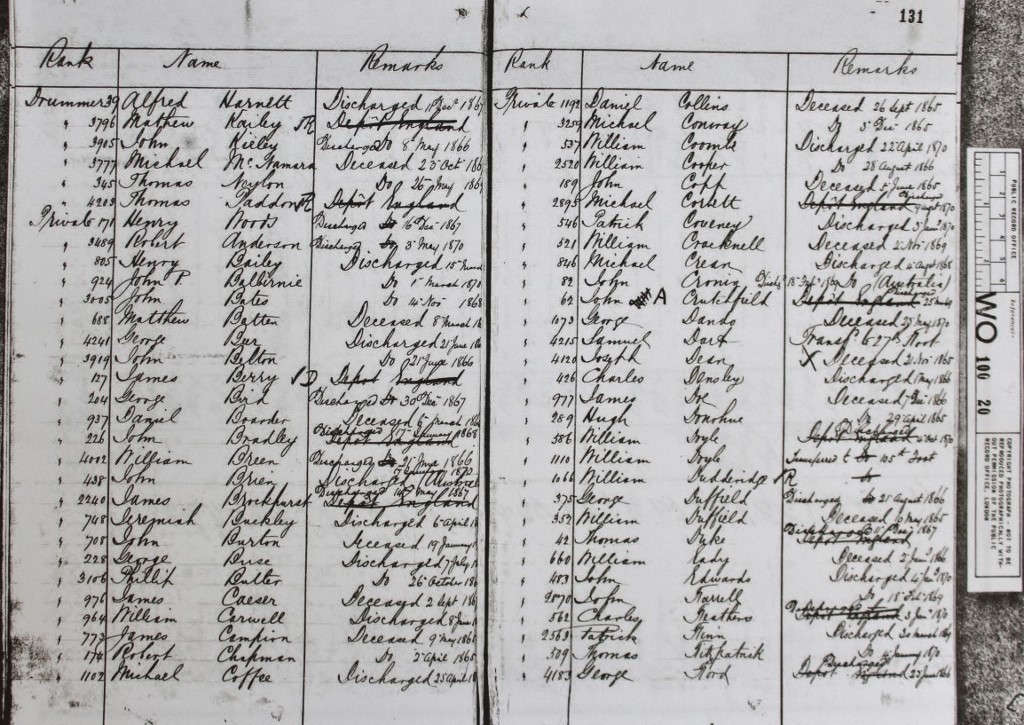 131
Rank Name Remarks
Drummer 39 Alfred Harnett Discharged
" 3796 Mathew Kailey Depôt England
" 3905 John Kieley Discharged Do 8 May 1866
" 3777 Michael McNamara Deceased 25 Oct
" 345 Thomas Neylon Do 26 May
" 4203 Thomas Paddon Depôt England
Private 171 Henry Woods Discharged Do 16 Dec 1867
" 3489 Robert Anderson Discharged Do 3 May 1870
" 805 Henry Bailey Discharged 15 March
" 924 John P. Balbernie Do 1 March 1870
" 3005 John Bates Do 14 Nov 1868
" 688 Matthew Batten Deceased 8 March
" 4241 George Discharged 21 June
" 3919 John Belton Do 21 June 1866
" 127 James Berry Depot England
" 204 George Bird Discharged Do 30 Dec 1867
" 937 Daniel Boarder Deceased
" 226 John Bradley Discharged Depôt England 1868
" 4002 William Breen Discharged Do 21 June 1866
" 438 John Brien Discharged
" 2240 James Brockhurst Discharged 14 May 1867 Depôt England
" 748 Jeremiah Buckley Discharged 6 April
" 708 John Burton Deceased 19 January
" 228 George Buse Discharged 7 July
" 3106 Phillip Butter Do 26 October
" 976 James Caeser Deceased 2 Sept
" 964 William Carwell Discharged 8 June
" 773 James Campion Deceased 9 May
" 174 Robert Chapman Do 2 April 1865
" 1102 Michael Coffee Discharged 25 April
Rank Name Remarks
Private 1192 Daniel Collins Deceased 26 Sept 1865
" 3259 Michael Conway Do 5 Dec 1865
" 537 William Coombe Discharged 22 April 1870
" 2520 William Cooper Do 28 August 1866
" 189 John Copp Deceased 5 June 1865
" 2895 Michael Corbett Discharged Depôt England 9 Sept 1870
" 546 Patrick Coveney Discharged 3 Jany 1870
" 521 William Cracknell Deceased 2 Nov 1869
" 846 Michael Crean Discharged 4 Augt 1868
" 82 John Cronin Do (Australia)
" 62 John A Crutchfield Depôt England
" 1073 George Dando Deceased 25 May 1870
" 4215 Samuel Dart Transfd to 27th Foot
" 4120 Joseph Dean X Deceased 21 Nov 1865
" 426 Charles Densley Discharged 1 May 1866
" 977 James Doe Deceased 7 Dec 1866
" 289 Hugh Donohue Do 29 April 1865
" 586 William Doyle Discharged Depôt England 4 Oct 1870
" 1110 William Doyle Transferred to Do 105th Foot
" 1066 William Dudderidge Do
" 375 George Duffield Discharged Do 21 August 1866
" 352 William Duffield Deceased 10 May 1865
" 42 Thomas Dyke Depôt England 1867
" 660 William Eady Deceased 2 June 1866
" 483 John Edwards Discharged 4 Jany 1870
" 2570 John Farrell Do 18 Feb 1869
" 562 Charles Feathers Depôt England 3 Jany 1870
" 2563 Patrick Finn Discharged 30 March 1869
" 509 Thomas Fitzpatrick Do 4 January 1870
" 4183 George Ford Discharged Depôt England 23 June 1866
PUBLIC RECORD OFFICE
Reference:-
WO 100 20
COPYRIGHT PHOTOGRAPH - NOT TO BE REPRODUCED PHOTOGRAPHICALLY WITHOUT PERMISSION OF THE PUBLIC RECORD OFFICE, LONDON